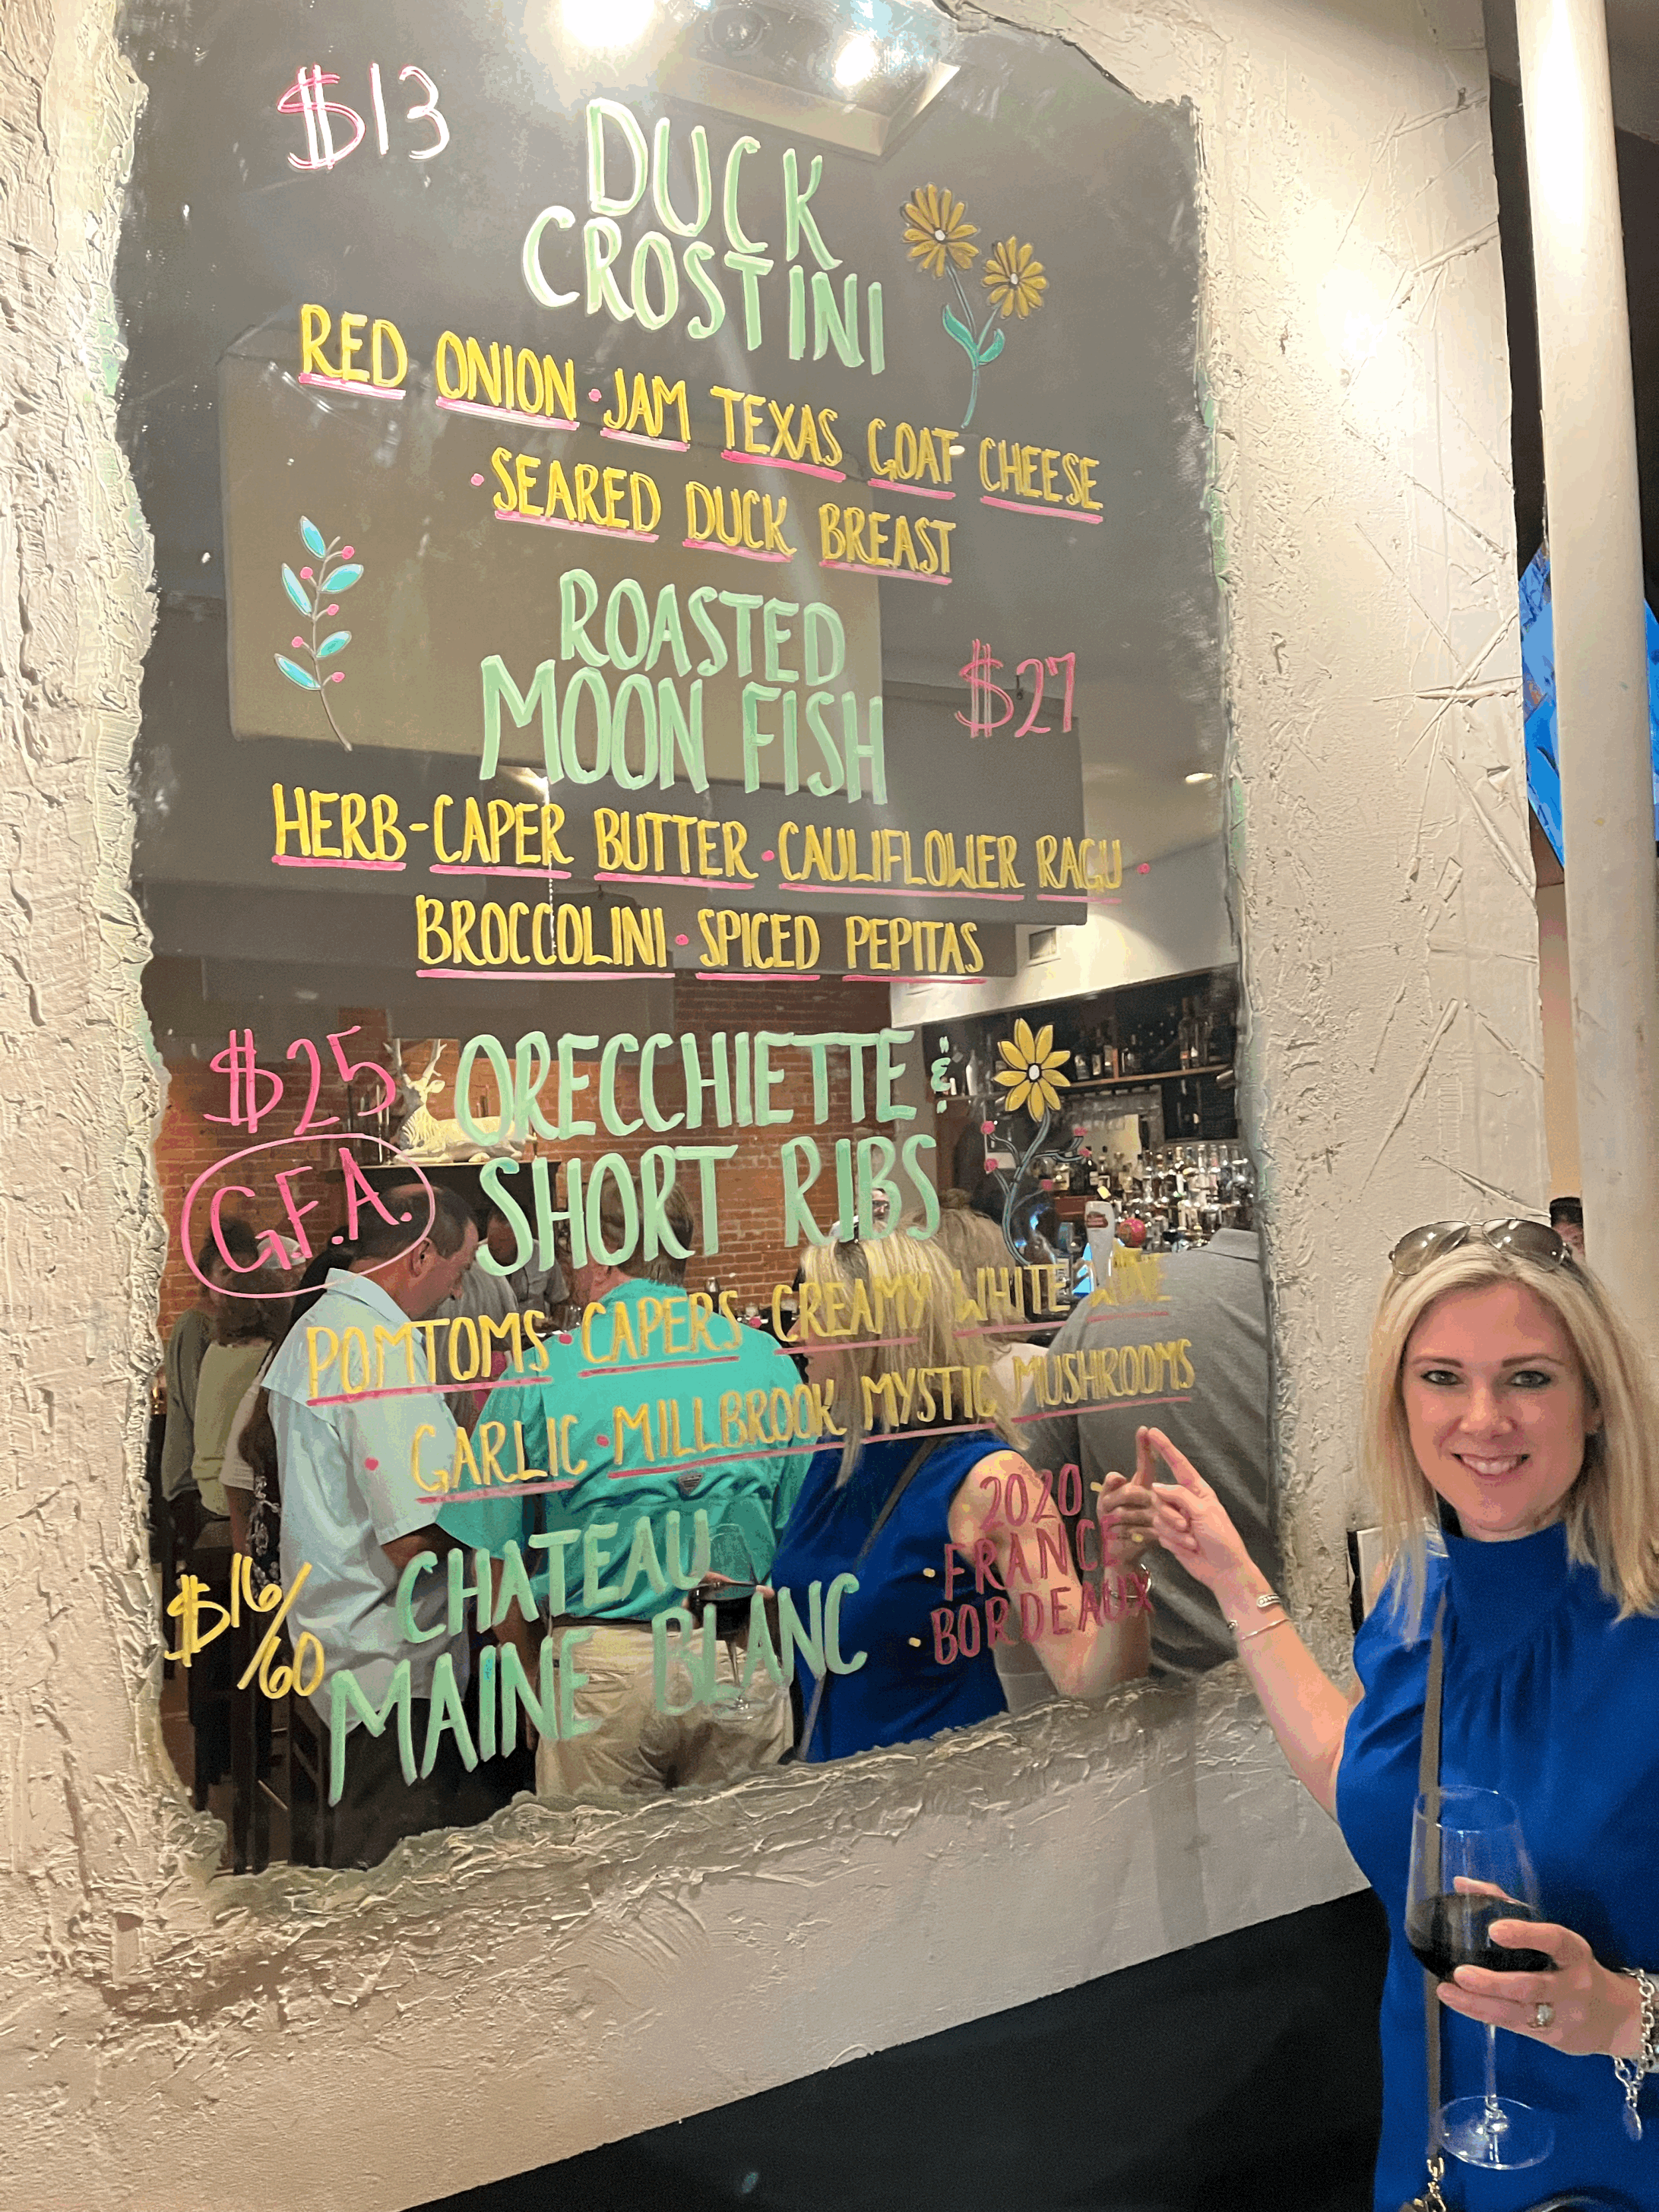 $13
DUCK
CROSTINI
RED ONION · JAM TEXAS GOAT CHEESE
· SEARED DUCK BREAST
ROASTED
MOON FISH
$27
HERB-CAPER BUTTER · CAULIFLOWER RAGU ·
BROCCOLINI · SPICED PEPITAS
$25
ORECCHIETTE &
SHORT RIBS
G.F.A.
POMTOMS · CAPERS · CREAMY WHITE WINE
· GARLIC · MILLBROOK MYSTIC MUSHROOMS
$16/60
CHATEAU
MAINE BLANC
2020 ·
· FRANCE
· BORDEAUX